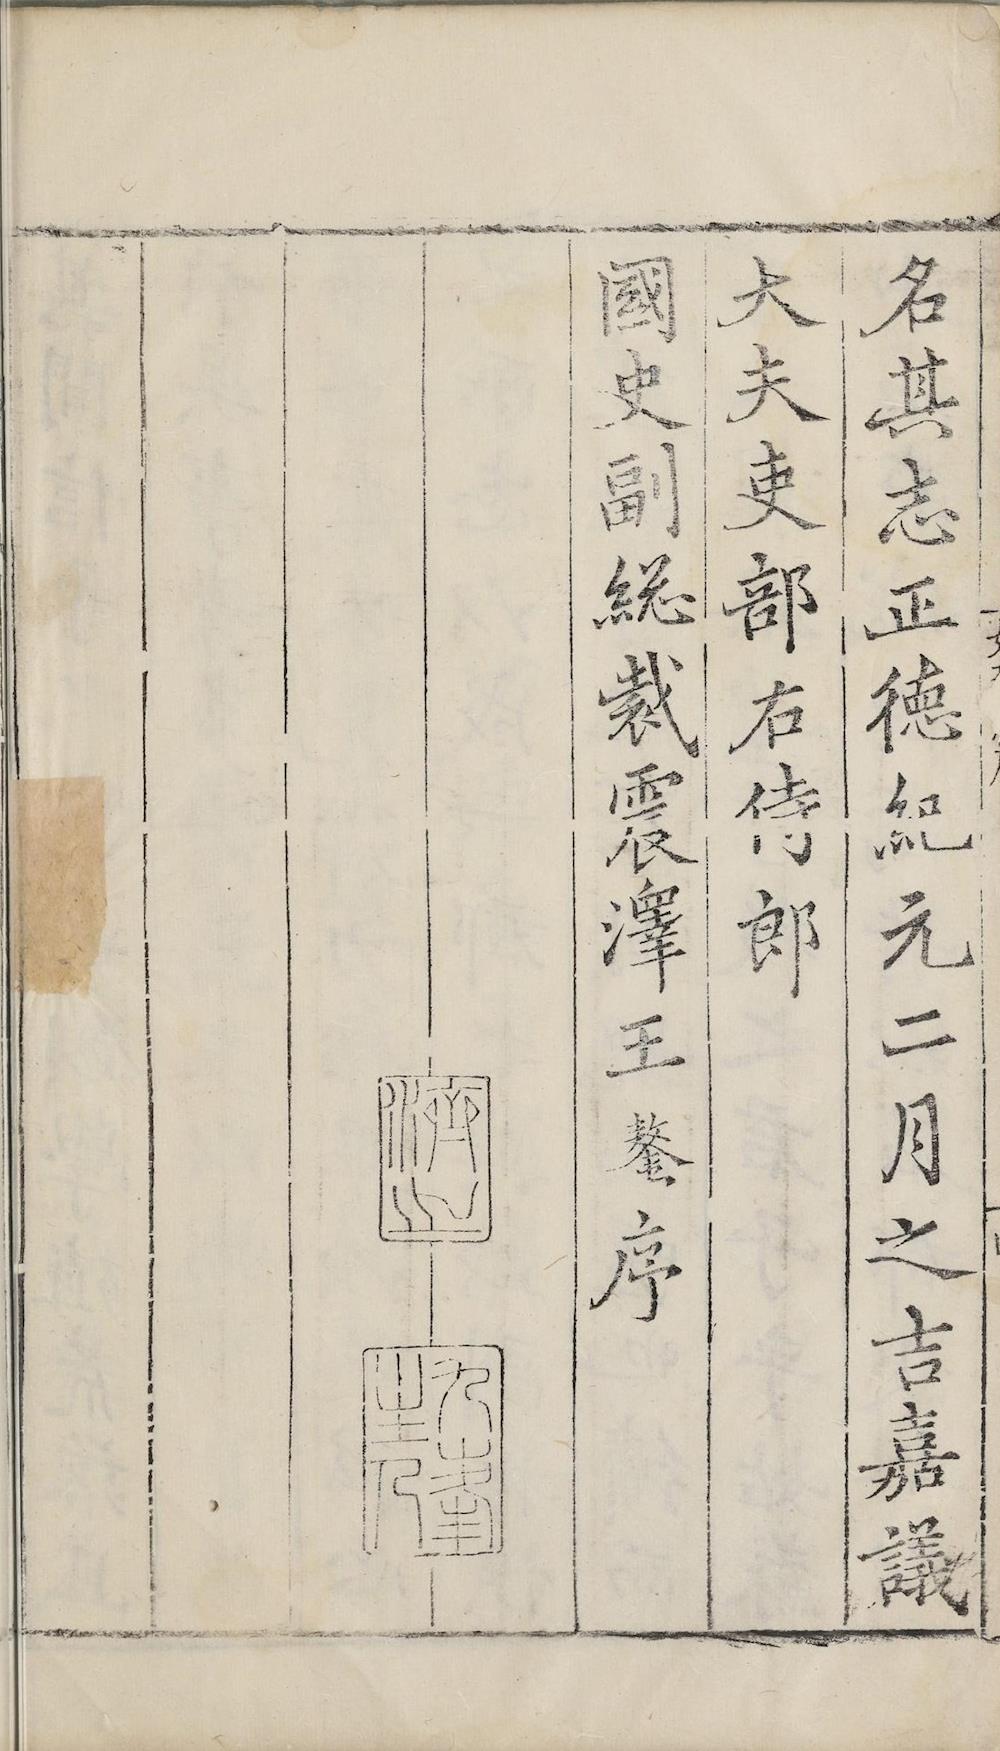 名其志正德紀元二月之吉嘉議
大夫吏部右侍郎
國史副総裁震澤王鏊序
濟之